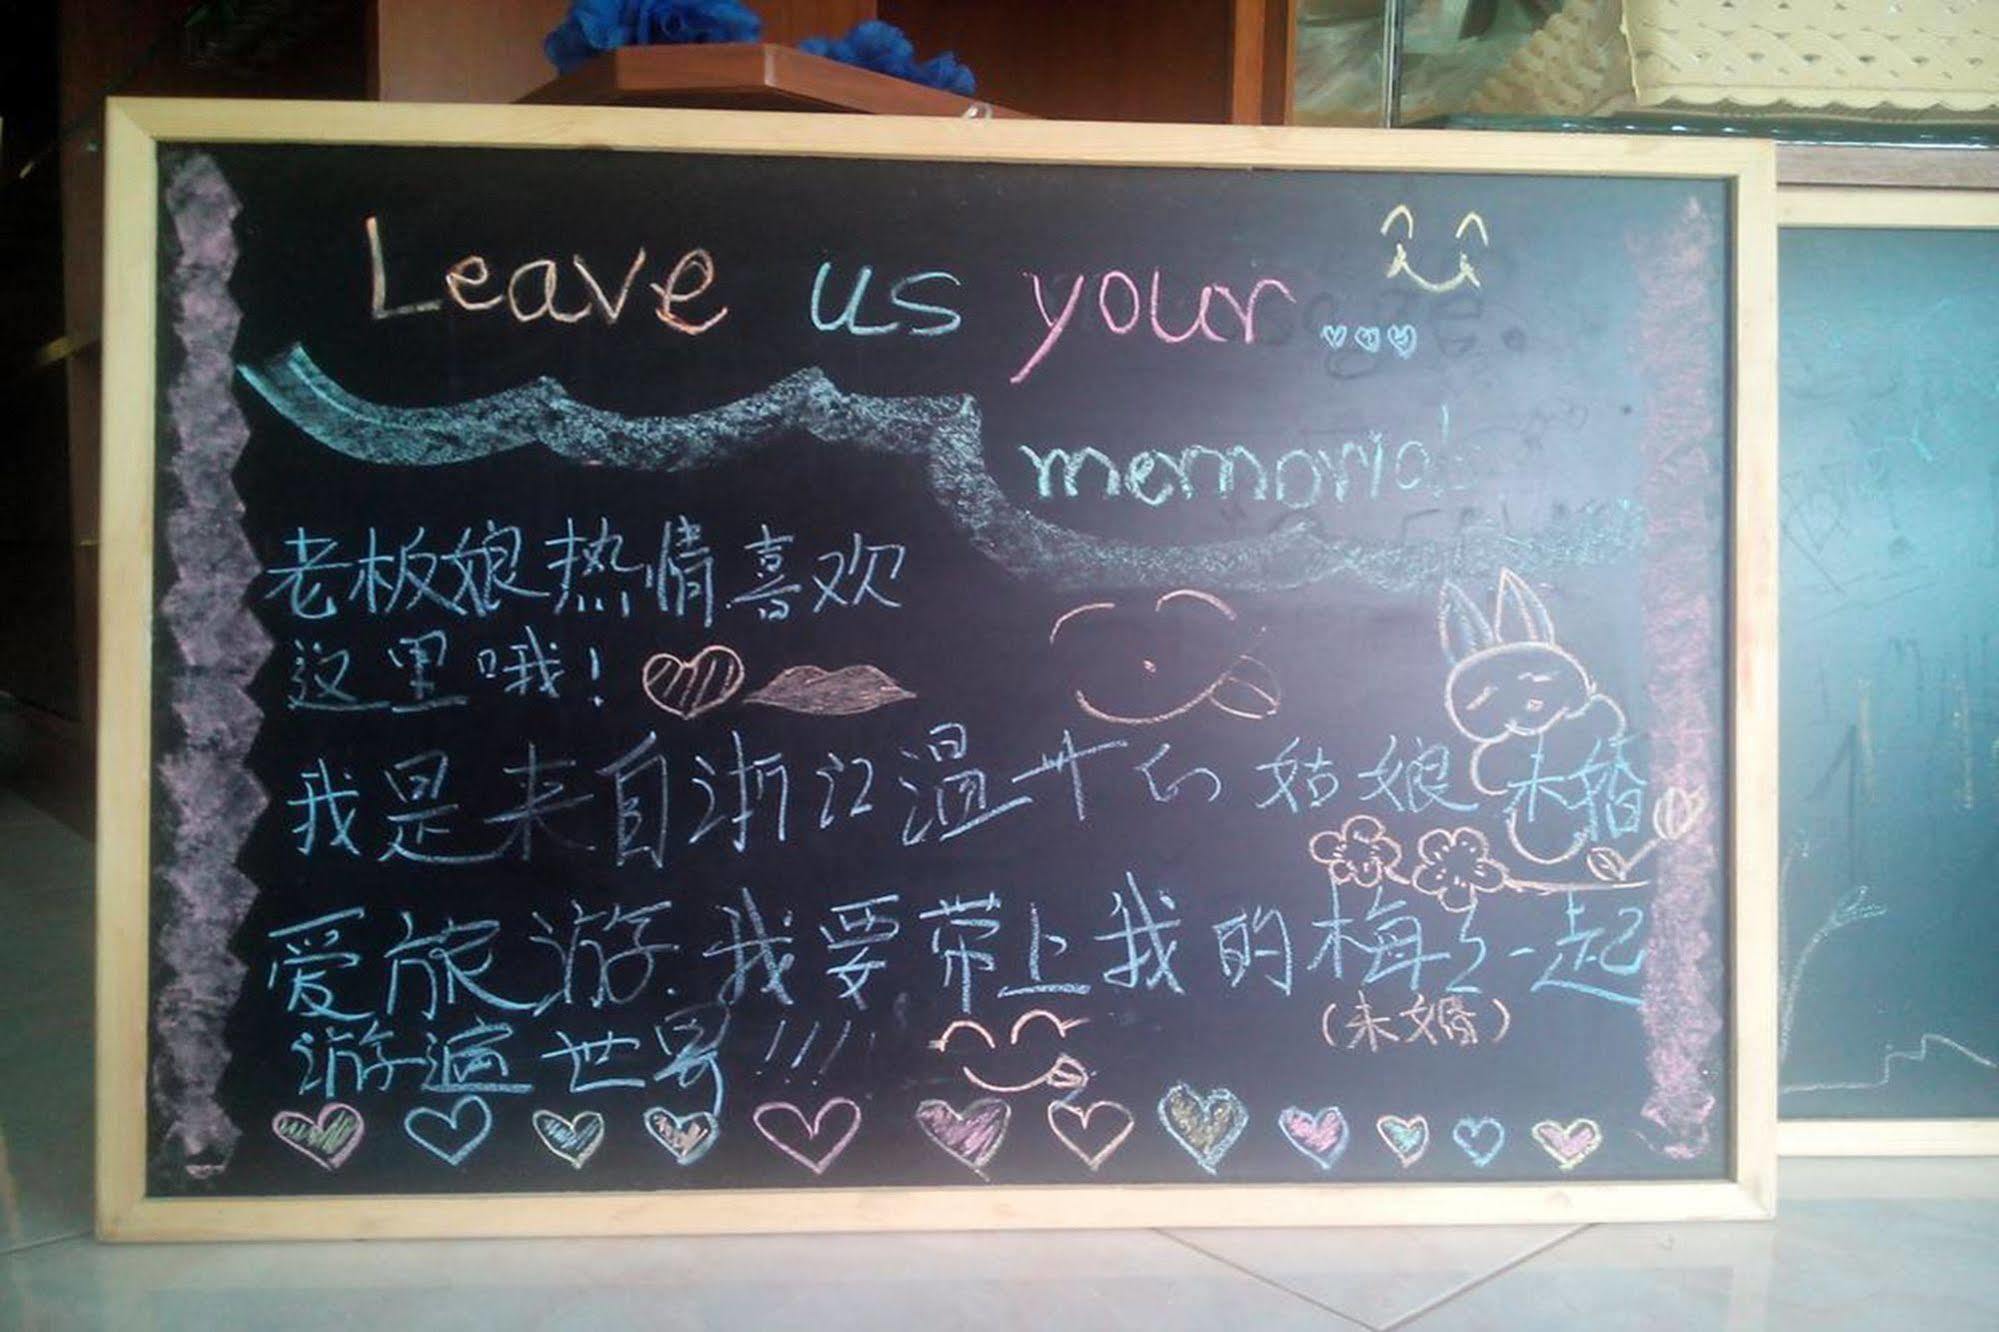 Leave us your
memorial
老板娘热情喜欢
这里哦!
我是来自浙江温州的姑娘 未婚
爱旅游.我要带上我的梅么一起
(未婚)
游遍世界!!!!